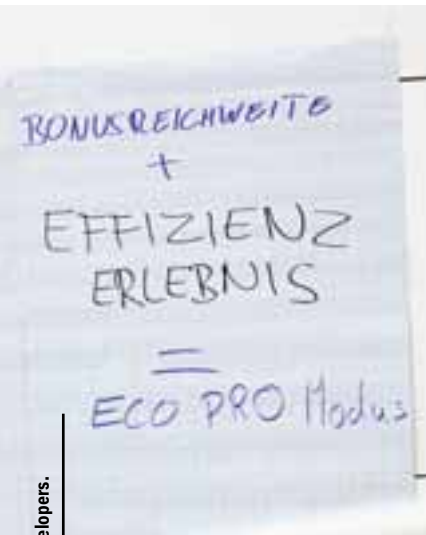 BONUSREICHWEITE
+
EFFIZIENZ
ERLEBNIS
=
ECO PRO Modus
elopers.